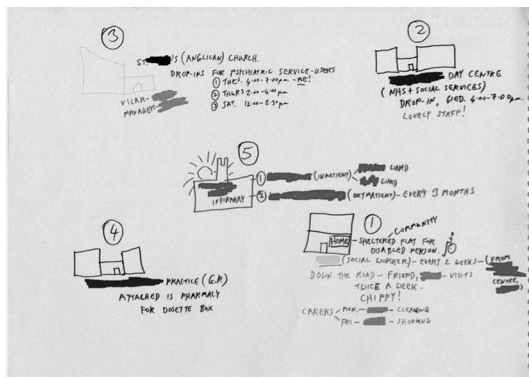 3
ST [redacted]'S (ANGLICAN) CHURCH.
DROP-INS FOR PSYCHIATRIC SERVICE-USERS
1 TUES. 4:00-7:00pm - ME!
2 THURS 2:00-4:00pm
3 SAT. 12:00-2:30pm
VICAR-
MANAGER-
2
DAY CENTRE
(NHS + SOCIAL SERVICES)
DROP-IN, WED. 4:00-7:00
LOVELY STAFF!
5
1 (INPATIENT) WARD
WARD
INFIRMARY
2 (OUTPATIENT) - EVERY 3 MONTHS
4
PRACTICE (G.P.)
ATTACHED IS PHARMACY
FOR DOSETTE BOX
1
COMMUNITY
HOME - SHELTERED FLAT FOR
DISABLED PERSON.
(SOCIAL WORKER) - EVERY 2 WEEKS - (FROM
CENTRE,
DOWN THE ROAD - FRIEND, - VISITS
TWICE A WEEK.
CHIPPY!
CARERS MON. - CLEANING
FRI - SHOPPING